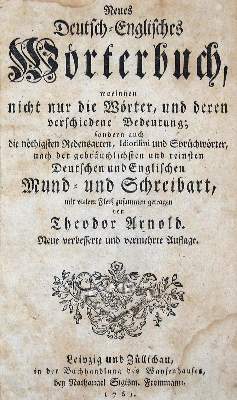 Neues
Deutsch-Englisches
Wörterbuch,
worinnen
nicht nur die Wörter, und deren
verschiedene Bedeutung;
sondern auch
die nöthigsten Redensarten, Idiotismi und Sprüchwörter,
nach der gebräuchlichsten und reinsten
Deutschen und Englischen
Mund- und Schreibart,
mit vielem Fleiß zusammen getragen
von
Theodor Arnold.
Neue verbesserte und vermehrte Auflage.
Leipzig und Züllichau,
in der Buchhandlung des Waysenhauses,
bey Nathanael Sigism. Frommann.
1761.